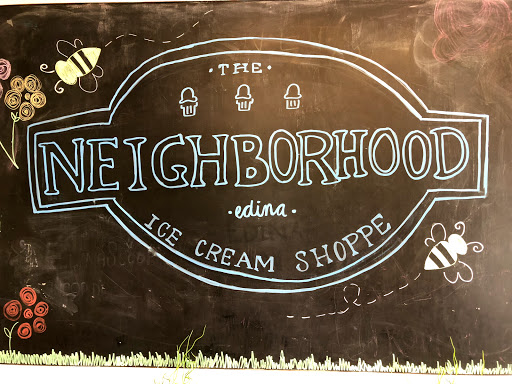 ·THE·
NEIGHBORHOOD
·edina·
ICE CREAM SHOPPE